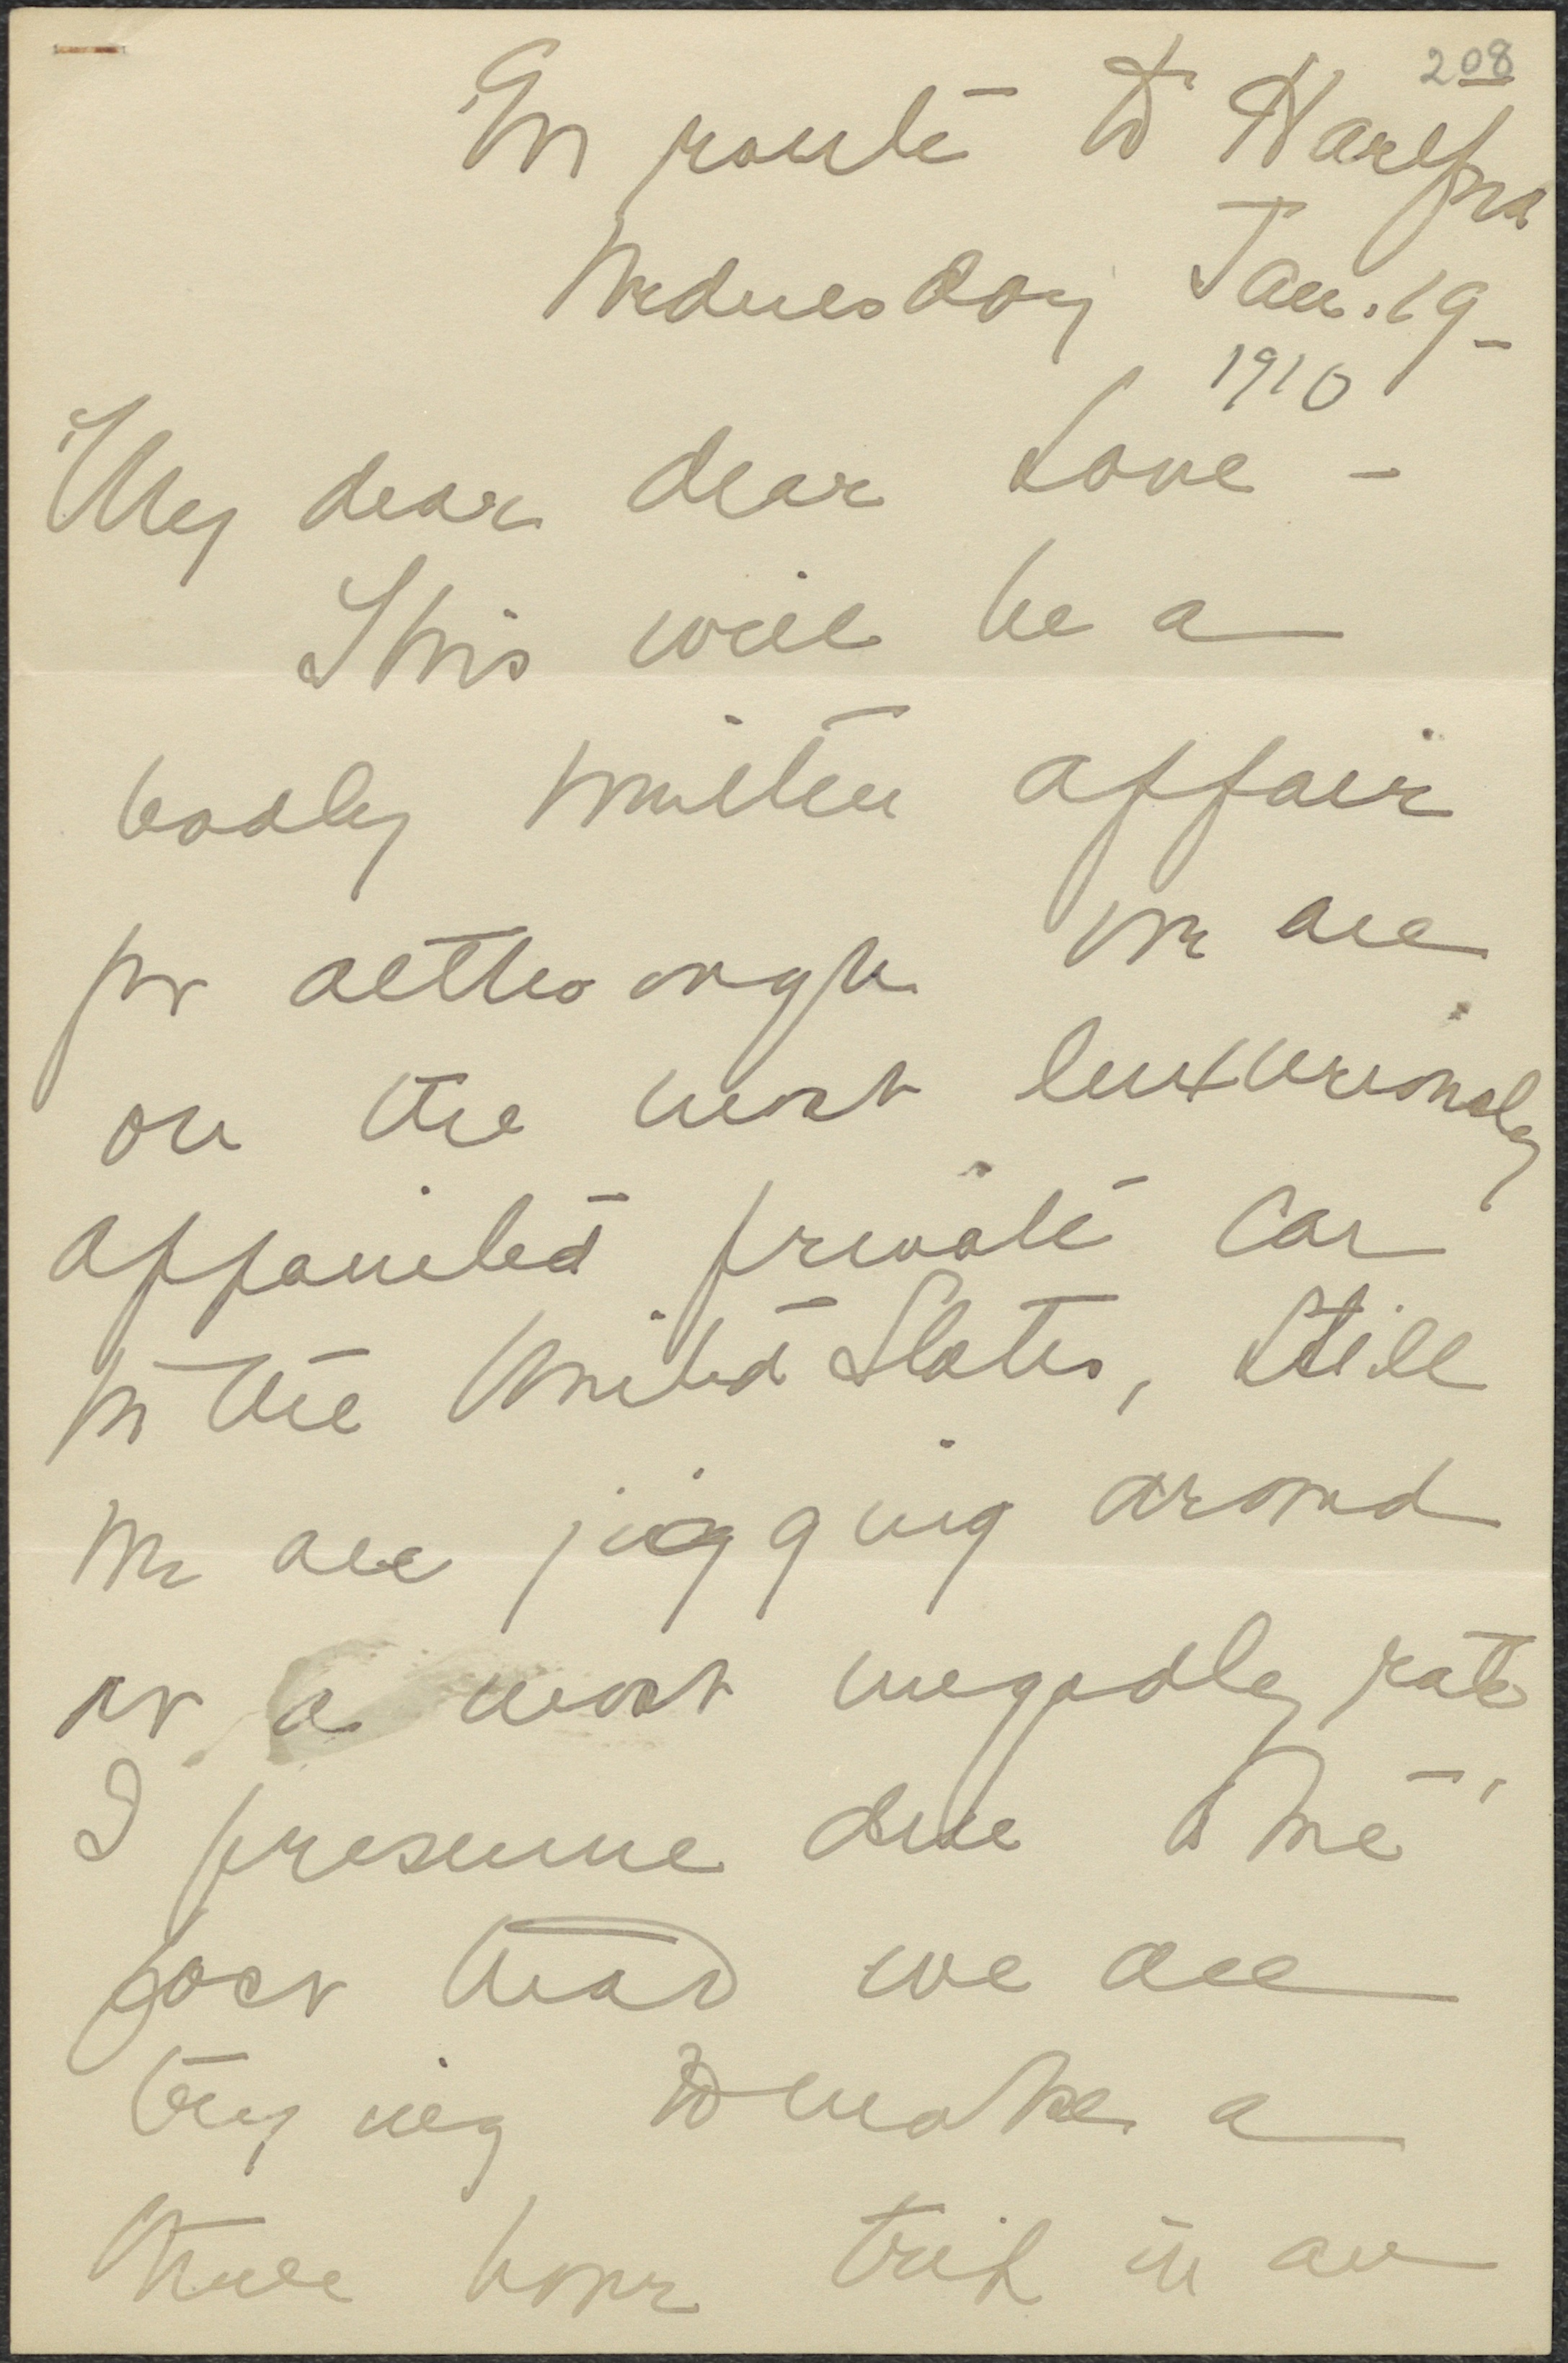 208
En route to Hartford
Wednesday Jan. 19 -
1910
My dear dear Love -
This will be a
badly written affair
for although we are
on the most luxuriously
appointed private car
in the United States, still
we are jigging around
at a most ungodly rate
I presume due to the
fact that we are
trying to make a
three hour trip in an